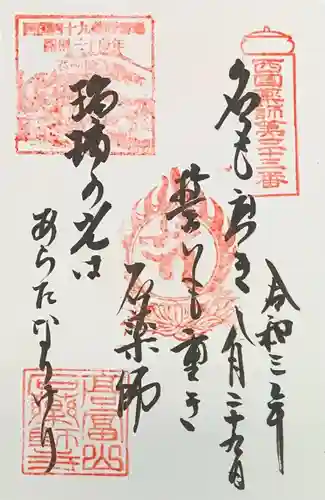 西国薬師第三十三番
令和三年
八月二十九日
名も高き
誓いも重き
石薬師
瑠璃の光は
あらたなりけり
高富山
石薬師寺